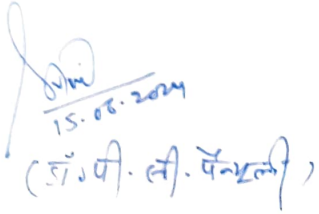 15.06.2024
(डॉ. पी. सी. पैन्यूली)